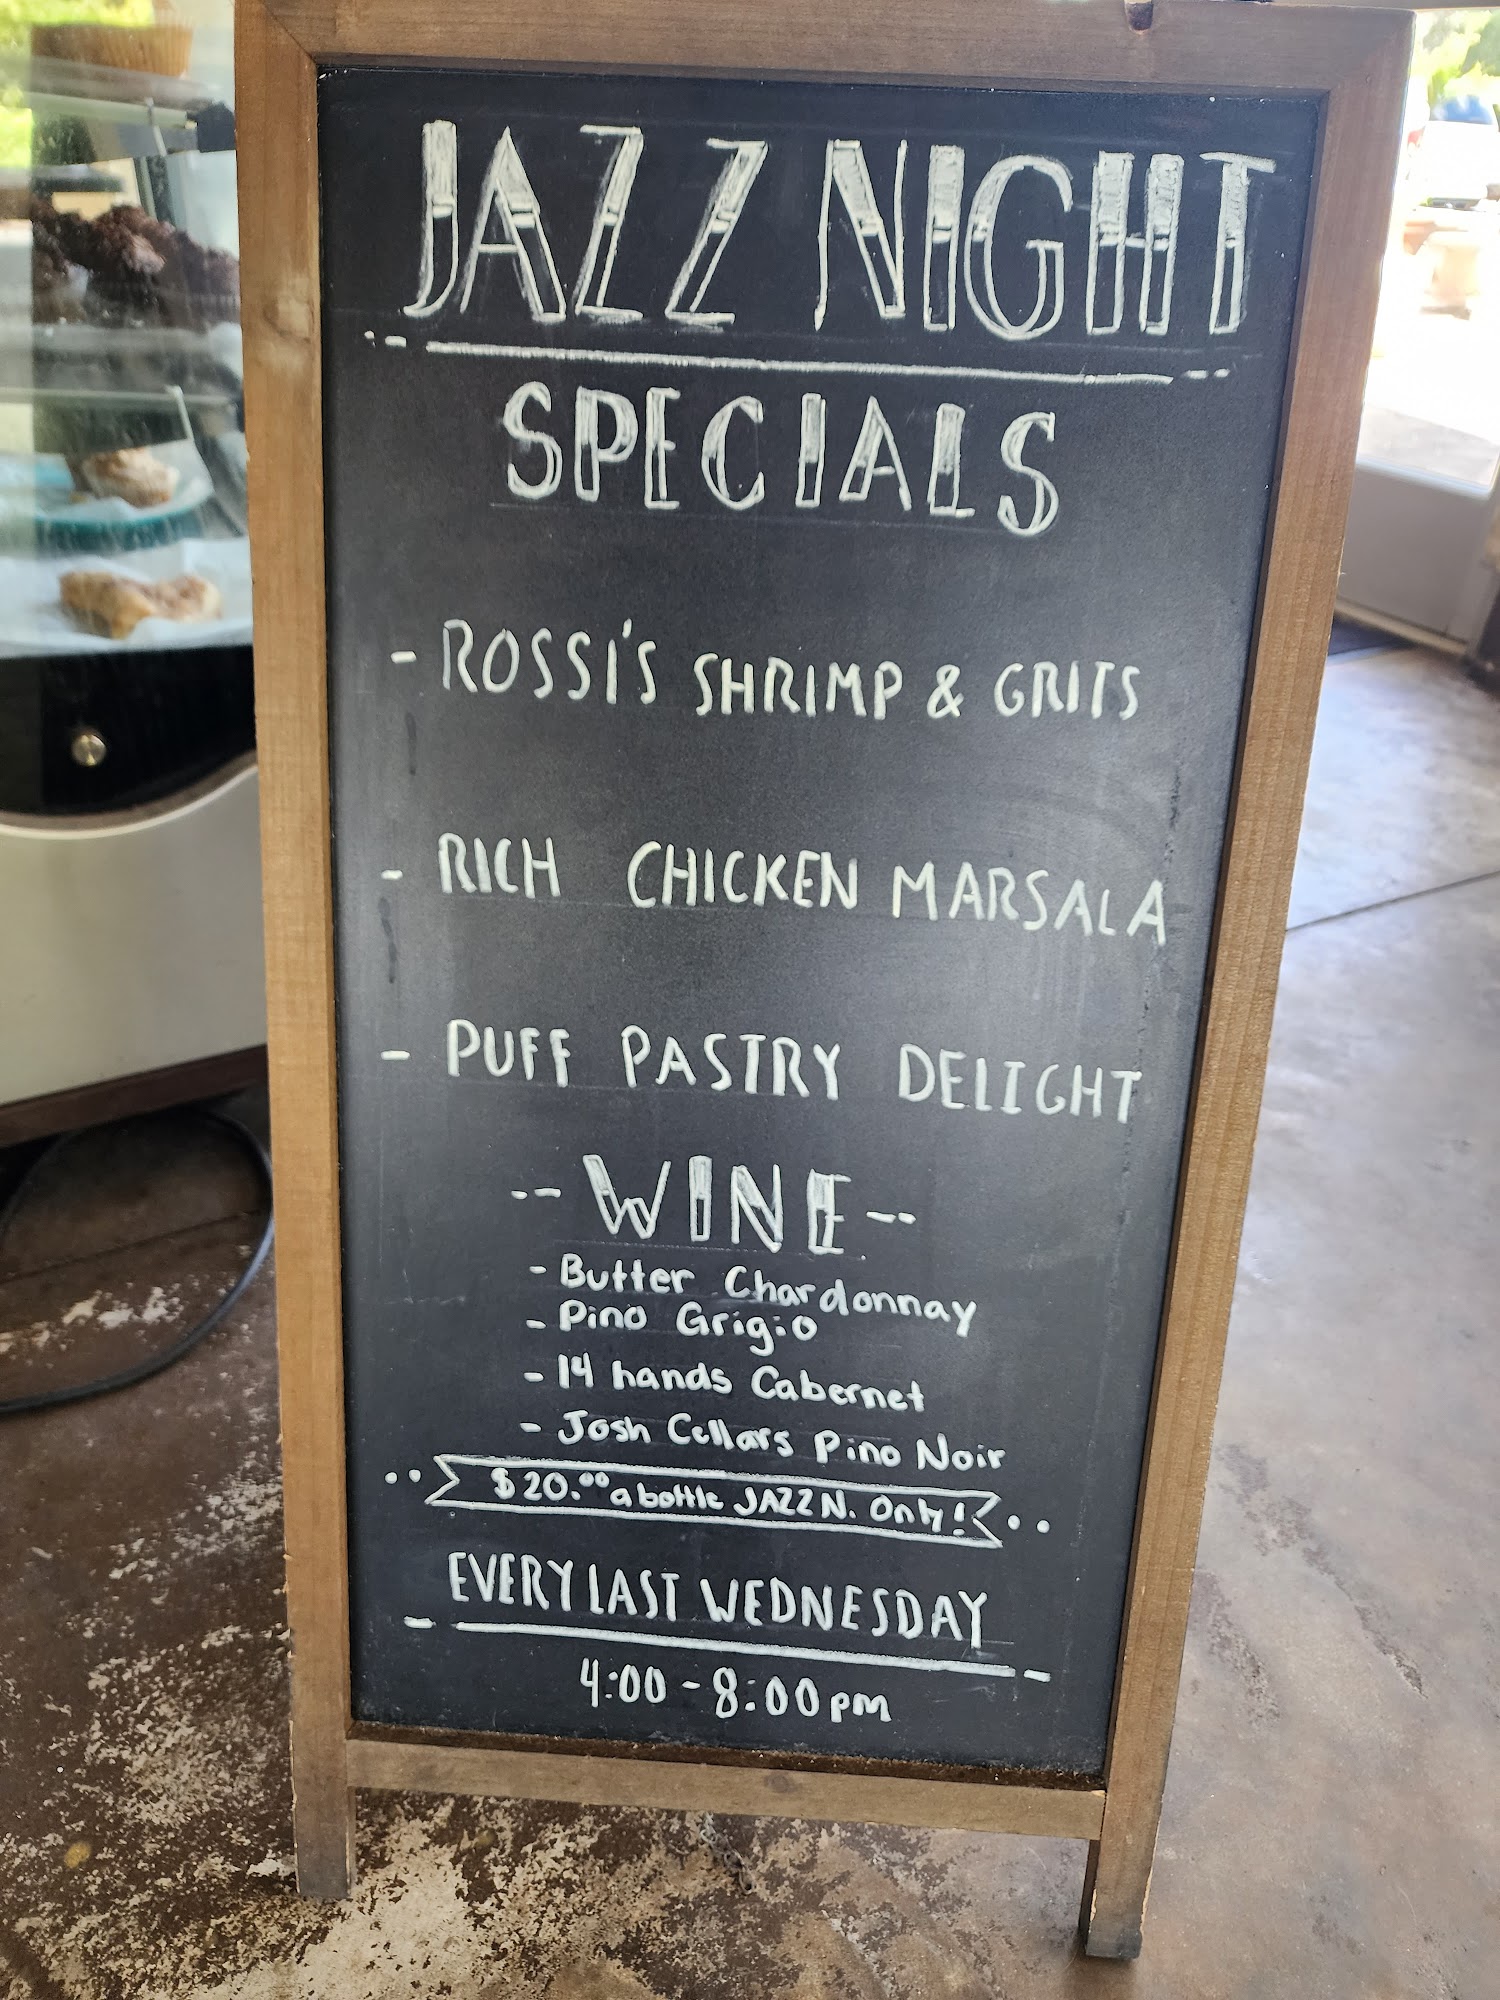 JAZZ NIGHT
SPECIALS
- ROSSI'S SHRIMP & GRITS
- RICH CHICKEN MARSALA
- PUFF PASTRY DELIGHT
-- WINE --
- Butter Chardonnay
- Pino Grigio
- 14 hands Cabernet
- Josh Cellars Pino Noir
$20.00 a bottle JAZZ N. Only!
EVERY LAST WEDNESDAY
4:00 - 8:00 pm